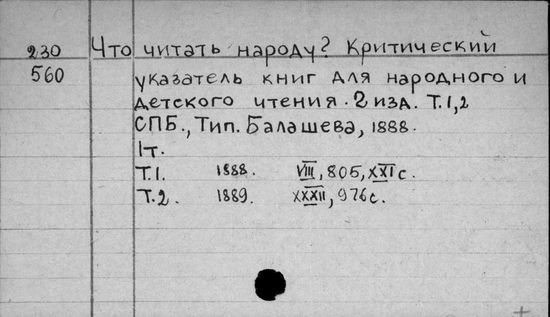 230 Что читать народу? Критический
560 указатель книг для народного и
детского чтения. 2 изд. Т. 1,2
СПБ., Тип. Балашева, 1888.
1т.
Т.1. 1888. VIII, 805, XXI с.
Т.2. 1889. XXXII, 976 с.